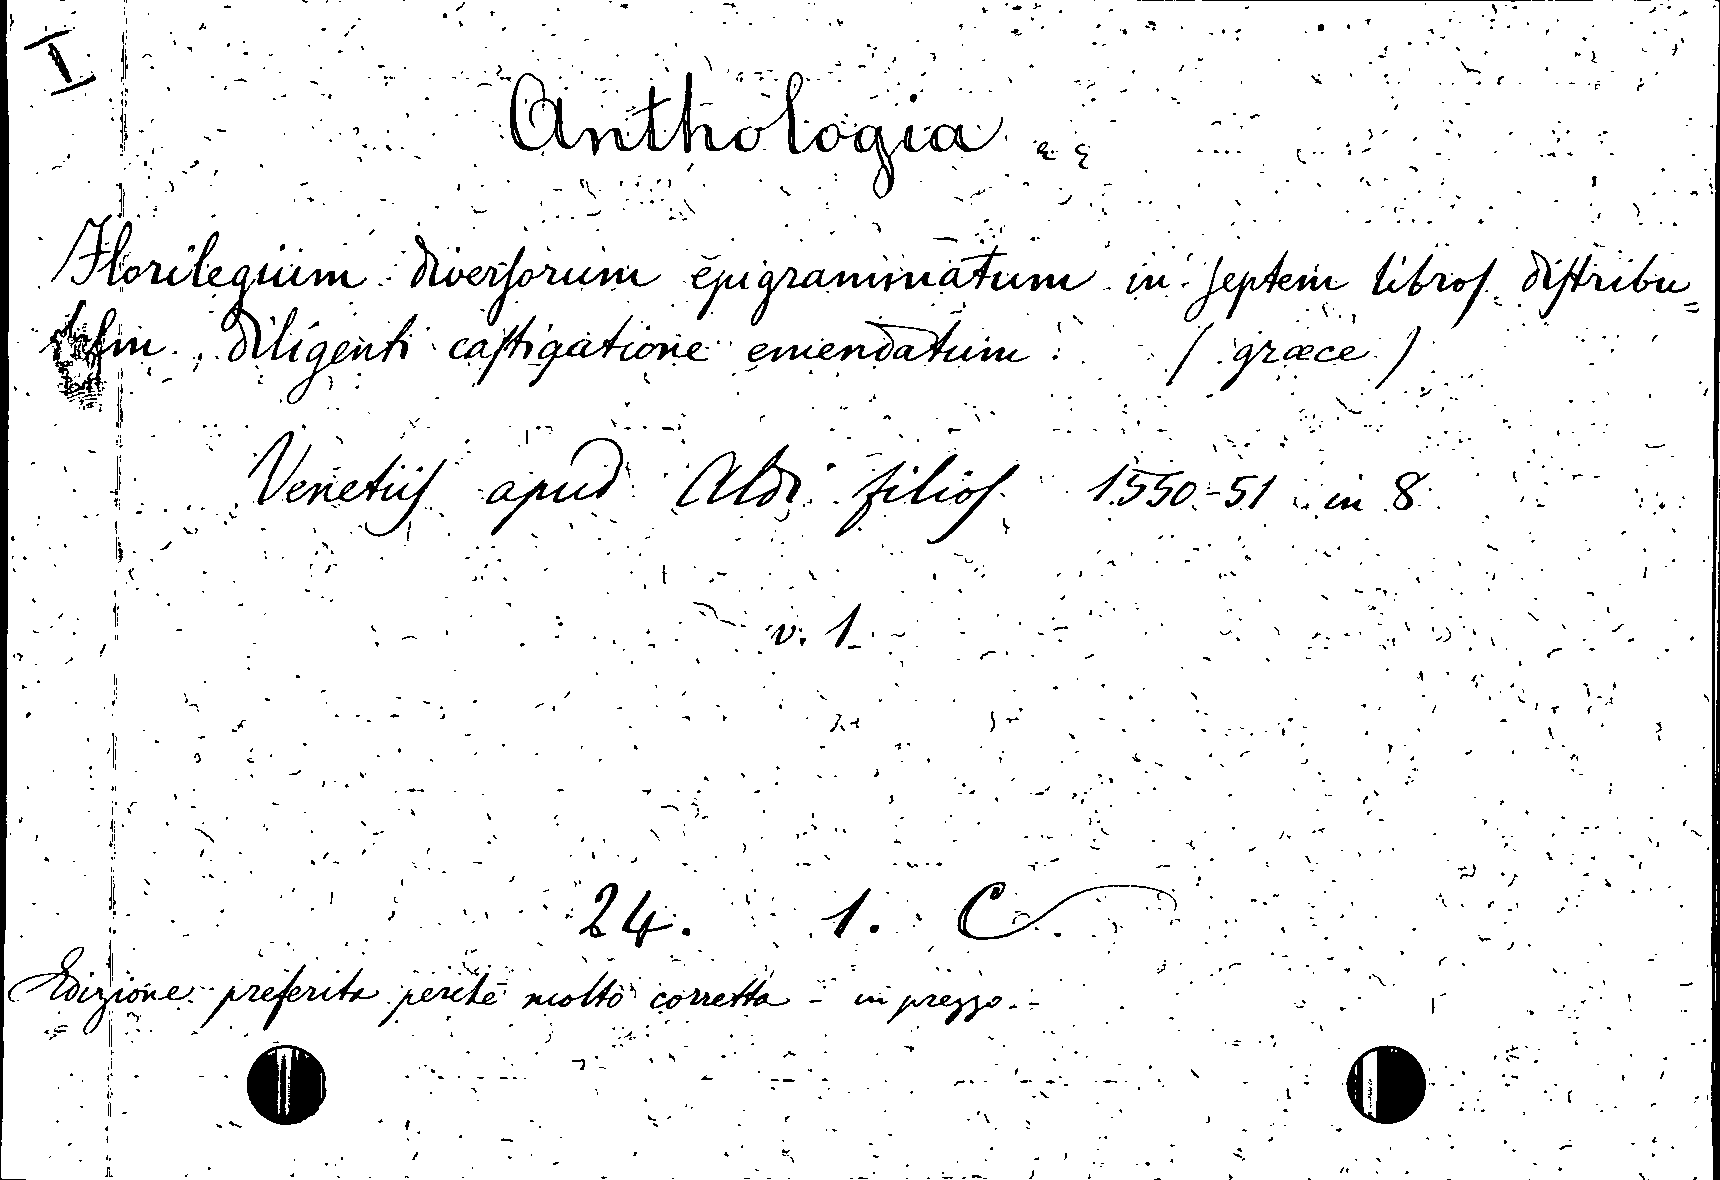 I
Anthologia
Florilegium diversorum epigrammatum in septem libros distribu=
diligenti castigatione emendatum: (græce)
Venetiis apud Aldi filios 1550-51 in 8
v. 1
24. 1. C.
Edizione preferita perchè molto corretta - in prezzo.-